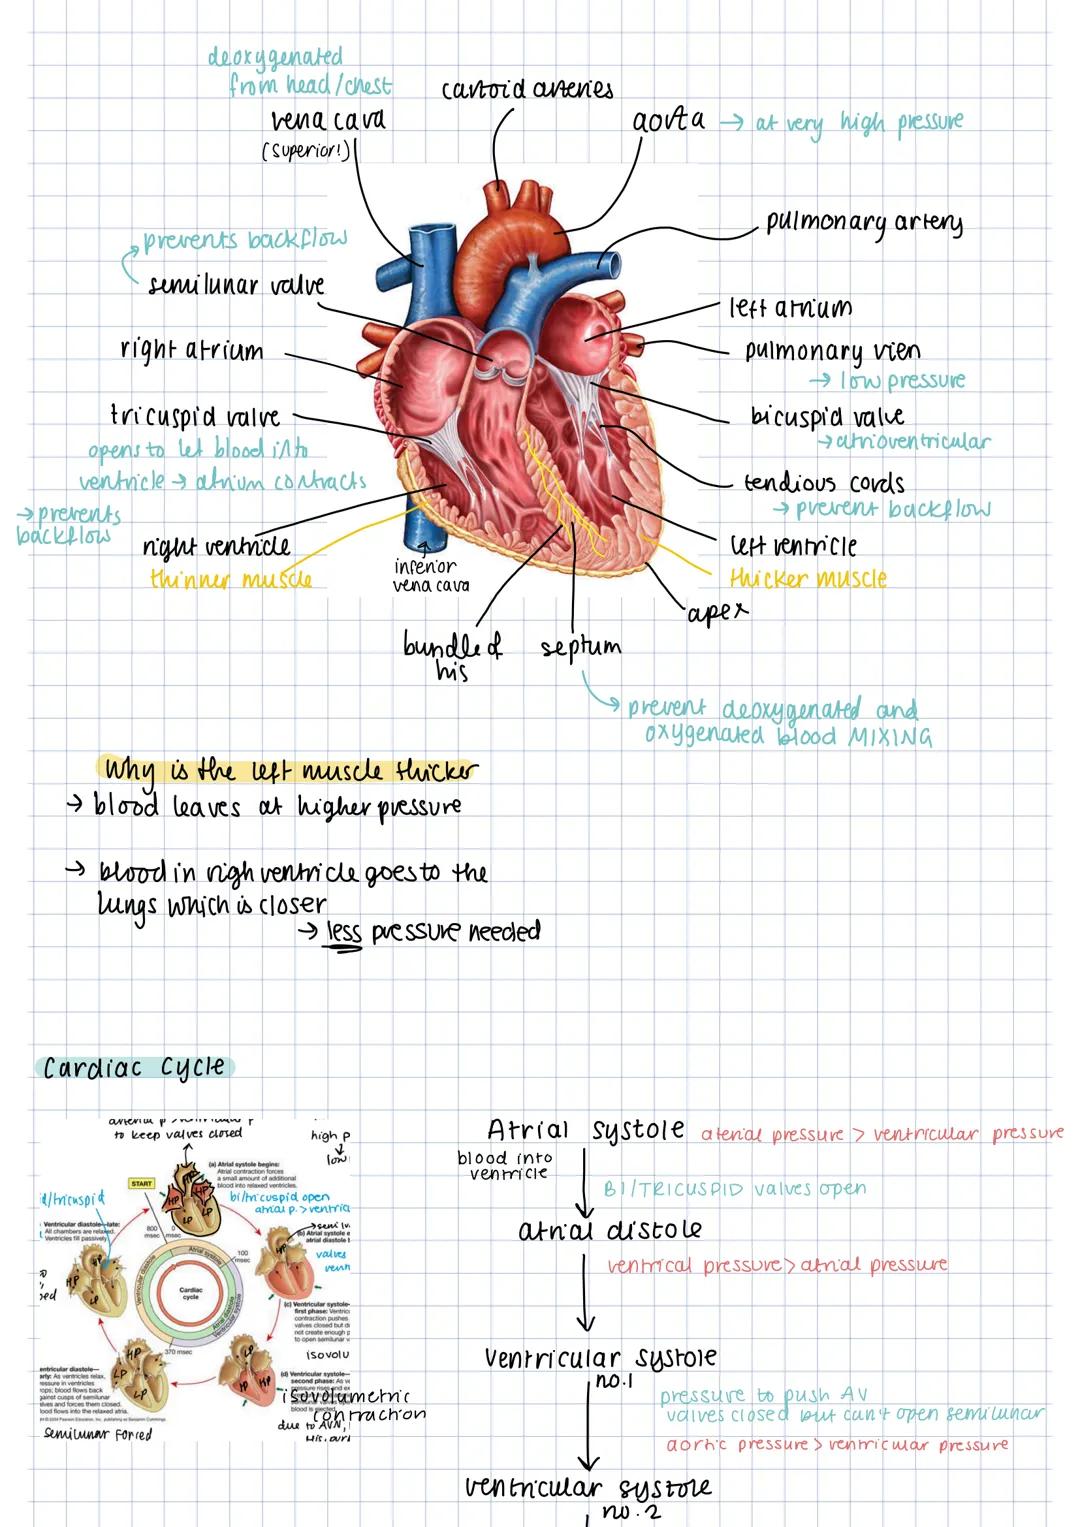 deoxygenated
from head/chest
vena cava
(superior!)
cartoid arteries
aorta → at very high pressure
pulmonary artery
prevents backflow
semilunar valve
left atrium
right atrium
pulmonary vien
→ low pressure
tricuspid valve
bicuspid valve
→ atrioventricular
opens to let blood into
ventricle → atrium contracts
tendious cords
→ prevent backflow
→ prevents
backflow
right ventricle
thinner muscle
inferior
vena cava
left ventricle
thicker muscle
apex
bundle of
his
septum
prevent deoxygenated and
oxygenated blood MIXING
Why is the left muscle thicker
→ blood leaves at higher pressure
→ blood in righ ventricle goes to the
lungs which is closer
→ less pressure needed
Cardiac Cycle
to keep valves closed
high p
low
(a) Atrial systole begins:
Atrial contraction forces
a small amount of additional
blood into relaxed ventricles.
START
bi/tricuspid open
atrial p. > ventric
d/tricuspid
Ventricular diastole—late:
All chambers are relaxed.
Ventricles fill passively.
HP
HP
HP
LP
LP
800
msec
0
msec
100
msec
370 msec
Atrial systole
Ventricular diastole
Atrial diastole
Ventricular systole
Cardiac
cycle
→ semilv
(b) Atrial systole e
atrial diastole b
valves
ventr
(c) Ventricular systole—
first phase: Ventric
contraction pushes
valves closed but do
not create enough p
to open semilunar v
isovolu
(d) Ventricular systole—
second phase: As v
pressure rises and ex
blood is ejected.
isovolumetric
contraction
due to AVN,
His, purk
entricular diastole—
arly: As ventricles relax,
ressure in ventricles
rops; blood flows back
gainst cusps of semilunar
alves and forces them closed.
lood flows into the relaxed atria.
semilunar forced
Atrial systole
aterial pressure > ventricular pressure
blood into
ventricle
BI/TRICUSPID valves open
atrial distole
ventrical pressure > atrial pressure
Ventricular systole
no.1
pressure to push AV
valves closed but can't open semilunar
aortic pressure > ventricular pressure
ventricular systole
no.2